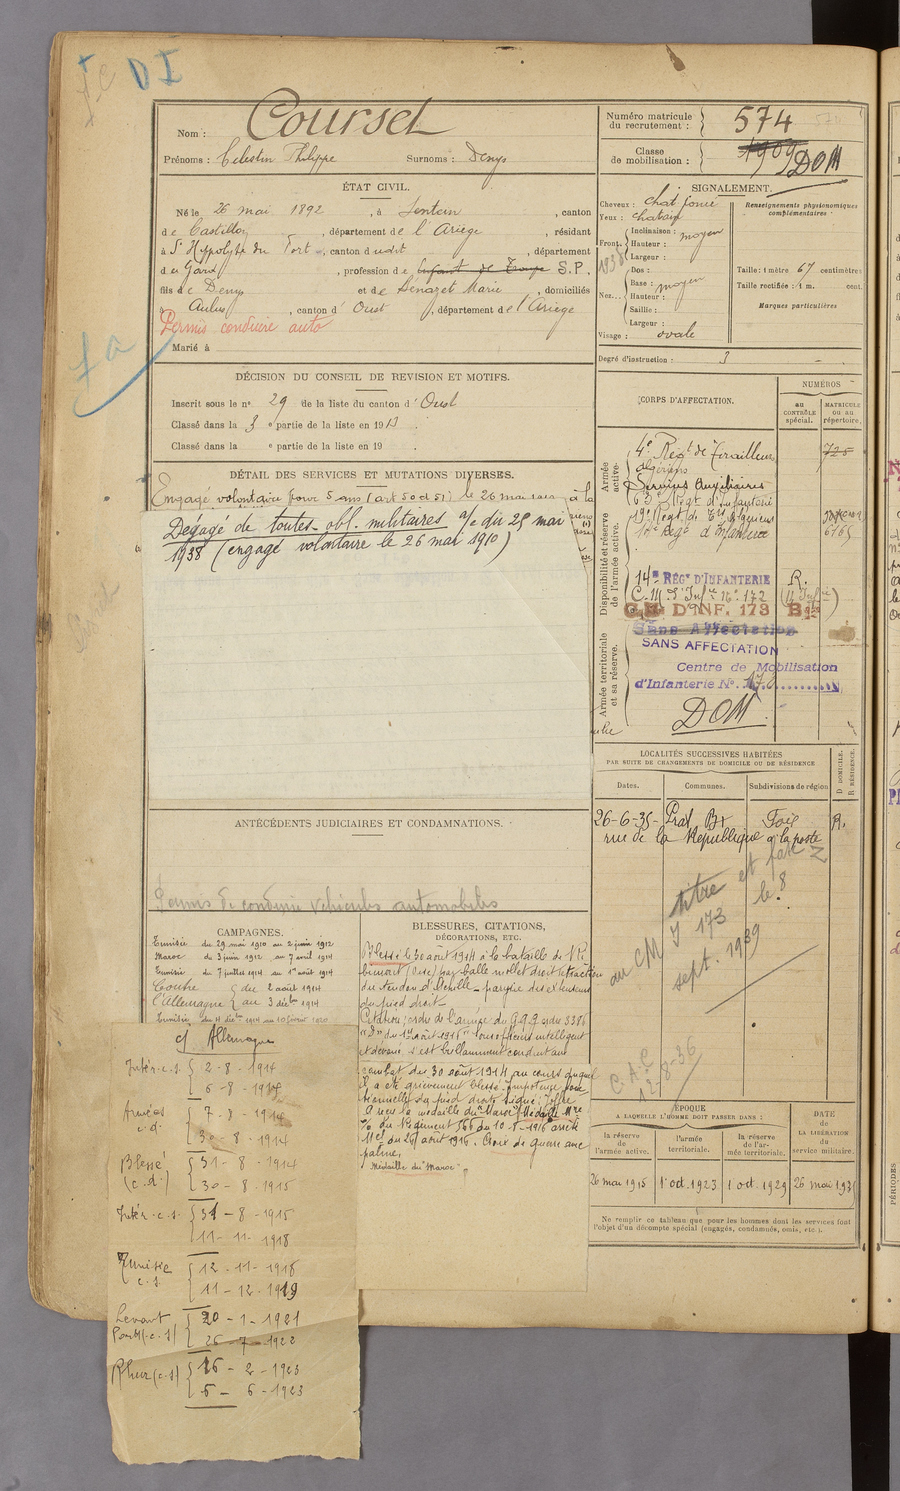 DI
Nom : Courset
Prénoms : Celestin Philippe Surnoms : Denys
Numéro matricule du recrutement : 574
Classe de mobilisation : 1909 DOM
ÉTAT CIVIL.
Né le 26 mai 1892, à Sentein, canton
de Castillon, département de l'Ariège, résidant
à St Hippolyte du Fort, canton dudit, département
du Gard, profession de Enfant de Troupe S.P.,
fils de Denys et de Sénazet Marie, domiciliés
à Aulus, canton d'Oust, département de l'Ariège
Permis conduire auto
Marié à
SIGNALEMENT.
Cheveux : chat foncé
Yeux : chatain
Front. Inclinaison : moyen
Hauteur :
Largeur :
Nez. Dos :
Base : moyen
Hauteur :
Saillie :
Largeur :
Visage : ovale
Renseignements physionomiques complémentaires
Taille : 1 mètre 67 centimètres
Taille rectifiée : 1 m. cent.
Marques particulières
Degré d'instruction : 3
DÉCISION DU CONSEIL DE REVISION ET MOTIFS.
Inscrit sous le no 29 de la liste du canton d'Oust
Classé dans la 3e partie de la liste en 1913.
Classé dans la e partie de la liste en 19 .
DÉTAIL DES SERVICES ET MUTATIONS DIVERSES.
Engagé volontaire pour 5 ans (art 50 et 51) le 26 mai 1910 à la
Dégagé de toutes obl. militaires a/c du 25 mai
1938 (engagé volontaire le 26 mai 1910)
CORPS D'AFFECTATION.
NUMÉROS
au CONTRÔLE spécial.
MATRICULE ou au répertoire.
Armée active.
4e Regt de Tirailleurs 725
algériens
Services Auxiliaires
Disponibilité et réserve de l'armée active.
63e Regt d'Infanterie
14e RÉGT D'INFANTERIE R.
C.M. d'Infie No 172
C.M. D'INF. 173
Armée territoriale et sa réserve.
Sans Affectation
SANS AFFECTATION
Centre de Mobilisation
d'Infanterie No 173
DOM
LOCALITÉS SUCCESSIVES HABITÉES
PAR SUITE DE CHANGEMENTS DE DOMICILE OU DE RÉSIDENCE
Dates. Communes. Subdivisions de région
D DOMICILE. R RÉSIDENCE.
26-6-35 - Prat Bx Foix R.
rue de la République à la poste
titre et pak
le 8
au CM I 173
sept. 1939
12-8-36
ANTÉCÉDENTS JUDICIAIRES ET CONDAMNATIONS.
Permis de conduire véhicules automobiles
CAMPAGNES.
Tunisie du 29 mai 1910 au 2 juin 1912
Maroc du 3 juin 1912 au 7 avril 1914
Tunisie du 7 juillet 1914 au 1er août 1914
Contre du 2 août 1914
l'Allemagne au 3 décbre 1914
Tunisie du 4 décbre 1914 au 10 février 1920
c/ Allemagne
Intér. c.s. 2-8-1914
6-8-1914
Armées c.d. 7-8-1914
30-8-1914
Blessé (c.d.) 31-8-1914
30-8-1915
Intér. c.s. 31-8-1915
11-11-1918
Tunisie c.s. 12-11-1918
11-12-1919
Levant 20-1-1921
26-7-1922
Rhur (c.s) 16-2-1923
6-6-1923
BLESSURES, CITATIONS,
DÉCORATIONS, ETC.
Blessé le 30 août 1914 à la bataille de
(Oise) par balle mollet droit
du tendon d'Achille - paralysie des extenseurs
du pied droit.
Citation; ordre de l'armée du G.Q.G. ordre 3386
"D" du 1er août 1916 "Sous officier intelligent
et dévoué, s'est brillamment conduit au
combat du 30 août 1914 au cours duquel
il a été grièvement blessé. Impotence fonc
tionnelle du pied droit signé: Joffre
A reçu la médaille du Maroc. Médaille Mre
du Régiment 566 du 10-8-1916 arrêté
Mel du 29 août 1916. Croix de guerre avec
palme.
Médaille du "Maroc"
ÉPOQUE
A LAQUELLE L'HOMME DOIT PASSER DANS :
la réserve de l'armée active. l'armée territoriale. la réserve de l'armée territoriale.
DATE de LA LIBÉRATION du service militaire.
26 mai 1915 1er oct. 1923 1 oct. 1929 26 mai 193
Ne remplir ce tableau que pour les hommes dont les services font
l'objet d'un décompte spécial (engagés, condamnés, omis, etc.).
PÉRIODES